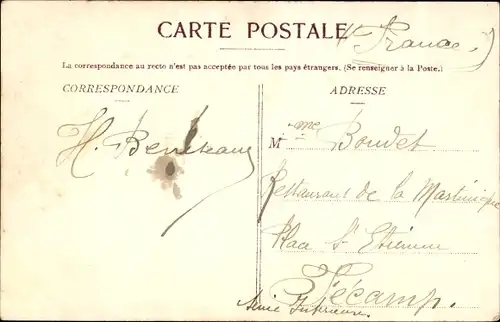 CARTE POSTALE
(France)
La correspondance au recto n'est pas acceptée par tous les pays étrangers. (Se renseigner à la Poste.)
CORRESPONDANCE
ADRESSE
H.
Mme Boudet
Restaurant de la Martinique
Place St Etienne
Fécamp.
Seine Inférieure